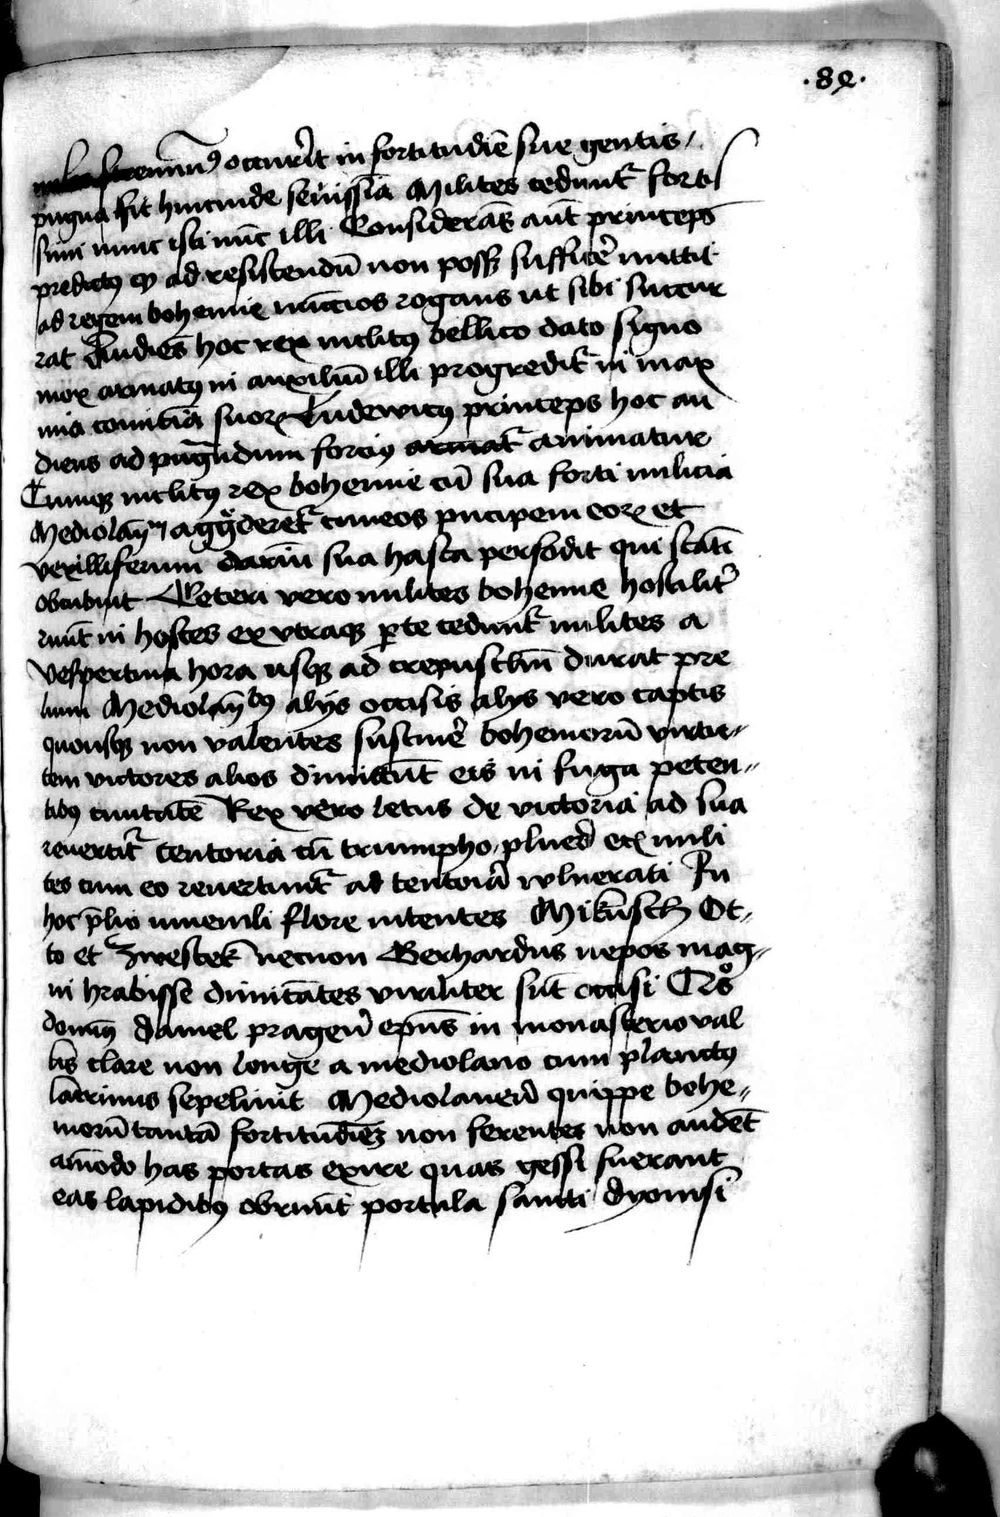 ·82·
occurrit in fortitudīe sue gentis
pugna fit hincinde seuissīa Milites cedunt᷑ fortis
simi nunc isti nūc illi Considerās aūt princeps
predictꝯ ꝙ ad resistendū non possꝫ sufficē mittit
ad regem bohemie nūccios rogans ut sibi succur
rat Audiēs hoc rex inclitꝯ bellico dato signo
mox armatꝯ in auxiliū illi progredit᷑ in max
ima comitīa suoꝝ Ludewicꝯ princeps hoc au
diens ad pugnādum forciꝯ animatur
Cumqꝫ inclitꝯ rex bohemie cū sua forti milicia
Mediolān aggrederet᷑ cuneos pncipem eoꝝ et
vexilliferum dariū sua hasta perfodit qui statī
obcubuit Ceteri vero milites bohemie hostilit᷑
ruūt in hostes ex vtraqꝫ ꝑte cedunt᷑ milites a
vespertina hora usqꝫ ad crepusclm̄ durat pre
lium Mediolān̄bꝯ alijs occisis alijs vero captis
quousqꝫ non valentes sustinē bohemorū virtu-
tem victores alios dimittūt eis in fuga peten-
tibꝯ ciuitatē Rex vēro letus de victoria ad sua
reuertit᷑ tentoria cū triumpho plures eciā mili
tes cum eo reuertunt᷑ ad tentoīa wlnerati In
hoc p̄lio iuuenili flore nitentes Mikusch Ot-
to et Zwestek necnon Gerhardus nepos mag-
ni hrabisse dimicātes viriliter sūt occisi
domin᷑ daniel pragen̄ ep̄us in monasterio val
lis clare non longe a mediolano cum planctu
lacrimis sepeliuit Mediolanen̄ quippe bohe-
morū tantā fortitudīeꝫ non ferentes non audēt
amodo has portas exire quas gessi fuerant
eas lapidibꝯ obruūt portula sancti dyonisi